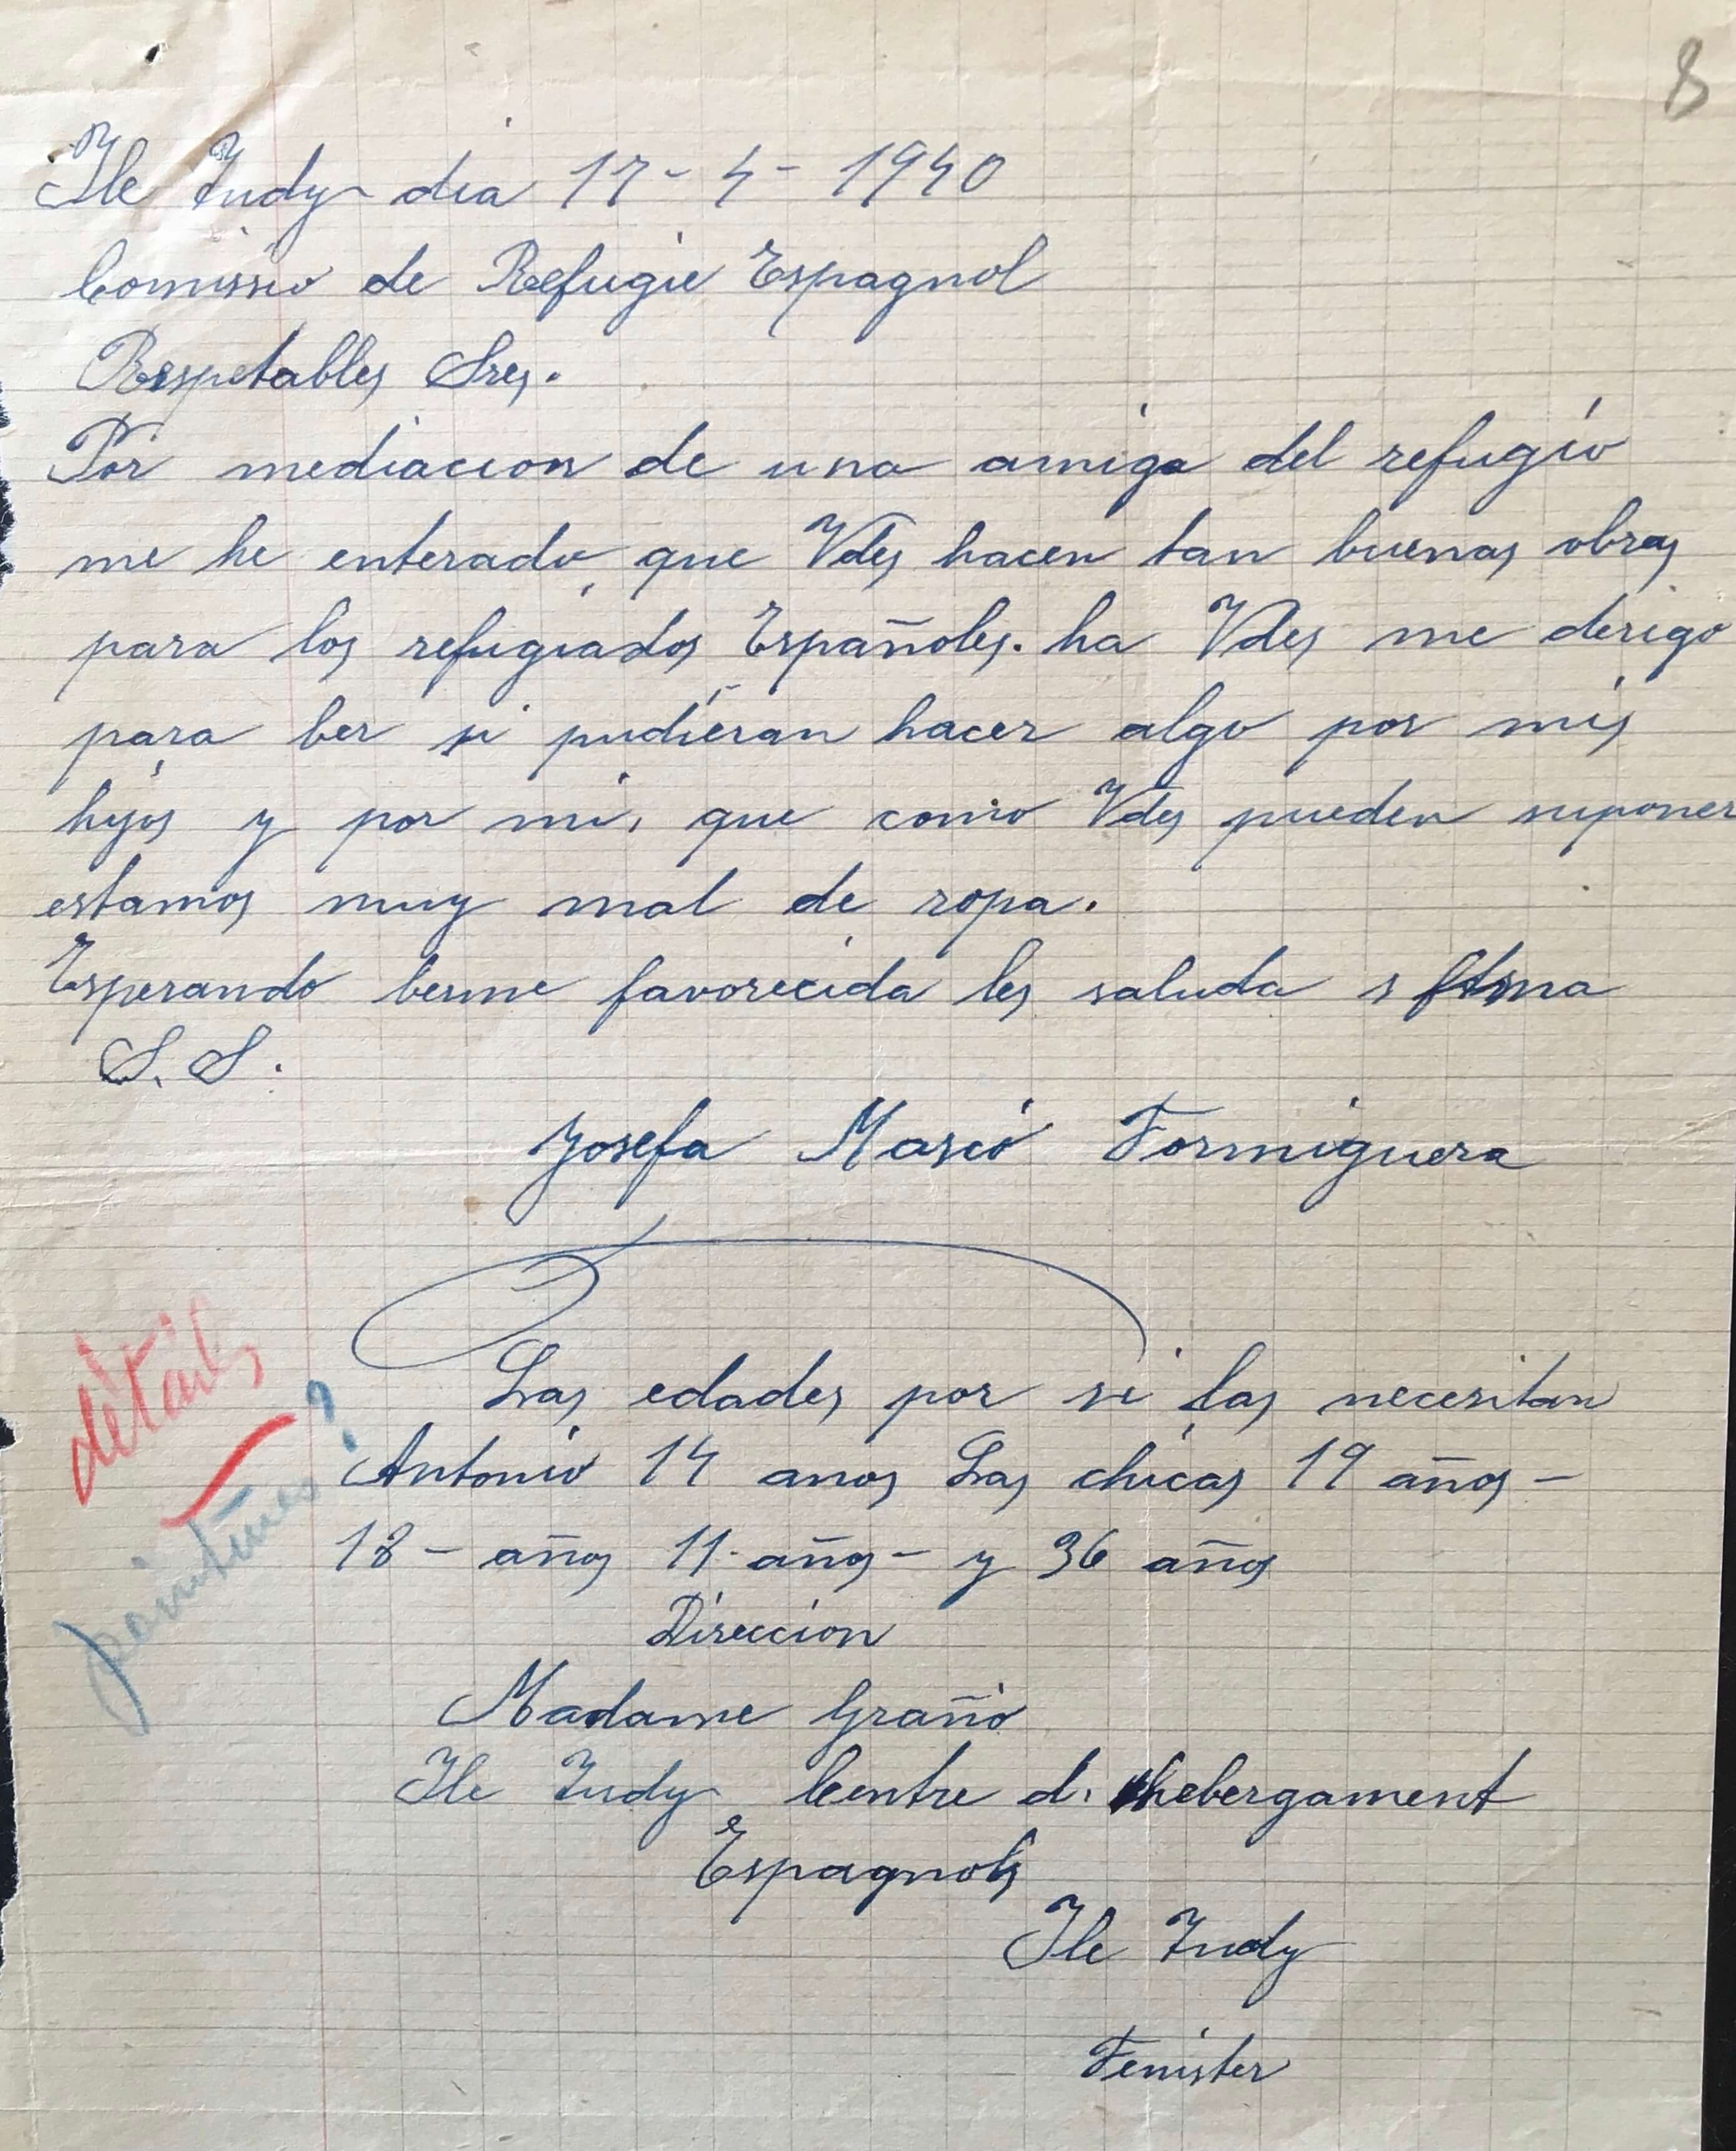 8
Ile Tudy dia 17-4-1940
Comissio de Refugie Espagnol
Respetables Sres.
Por mediacion de una amiga del refugio
me he enterado que Vdes hacen tan buenas obras
para los refugiados Españoles. ha Vdes me derigo
para ber si pudieran hacer algo por mis
hijos y por mi, que como Vdes pueden suponer
estamos muy mal de ropa.
Esperando berme favorecida les saluda s
S. S.
Josefa Masió Formiguera
Las edades por si las necesitan
Antonio 14 anos Las chicas 19 años-
18- años 11. años- y 36 años
Direccion
Madame Grañó
Ile Tudy Centre d. hebergament
Espagnols
Ile Tudy
Fenister
détails
pointures?